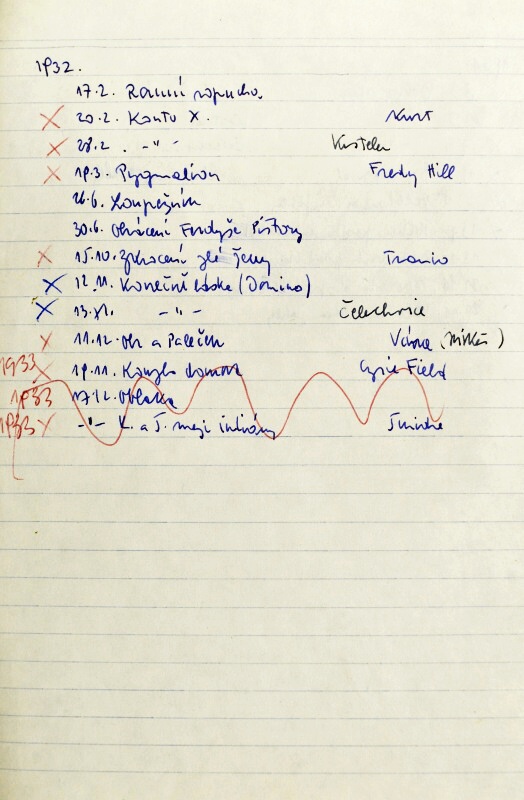 1932.
17.2. Ranní ropucha
× 20.2. Konto X. Kurt
× 28.2. -"- Kostelec
× 19.3. Pygmalion Fredy Hill
26.6. Loupežník
30.6. Obrácení Ferdyše Pištory
× 15.10. Zkrocení zlé ženy Tranio
× 12.11. Konečně láska (Domino)
× 13.XI. -"- Čelechovice
× 11.12. Ok a Paleček Vávra
1933 × 19.11. domova Field
1933 17.12. Oblaka
1933 × -"- K. a T. mezi indiány